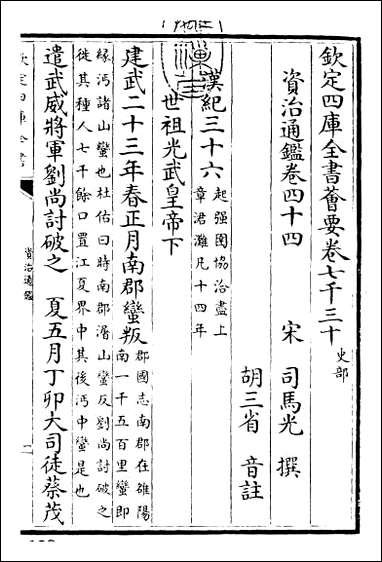 欽定四庫全書薈要卷七千三十 史部
資治通鑑卷四十四
宋 司馬光 撰
胡三省 音註
漢紀三十六 起强圉協洽盡上
章涒灘凡十四年
世祖光武皇帝下
建武二十三年春正月南郡蠻叛 郡國志南郡在雒陽
南一千五百里蠻即
緣沔諸山蠻也杜佑曰時南郡潳山蠻反劉尚討破之
徙其種人七千餘口置江夏界中其後沔中蠻是也
遣武威將軍劉尚討破之 夏五月丁卯大司徒蔡茂
欽定四庫全書
資治通鑑